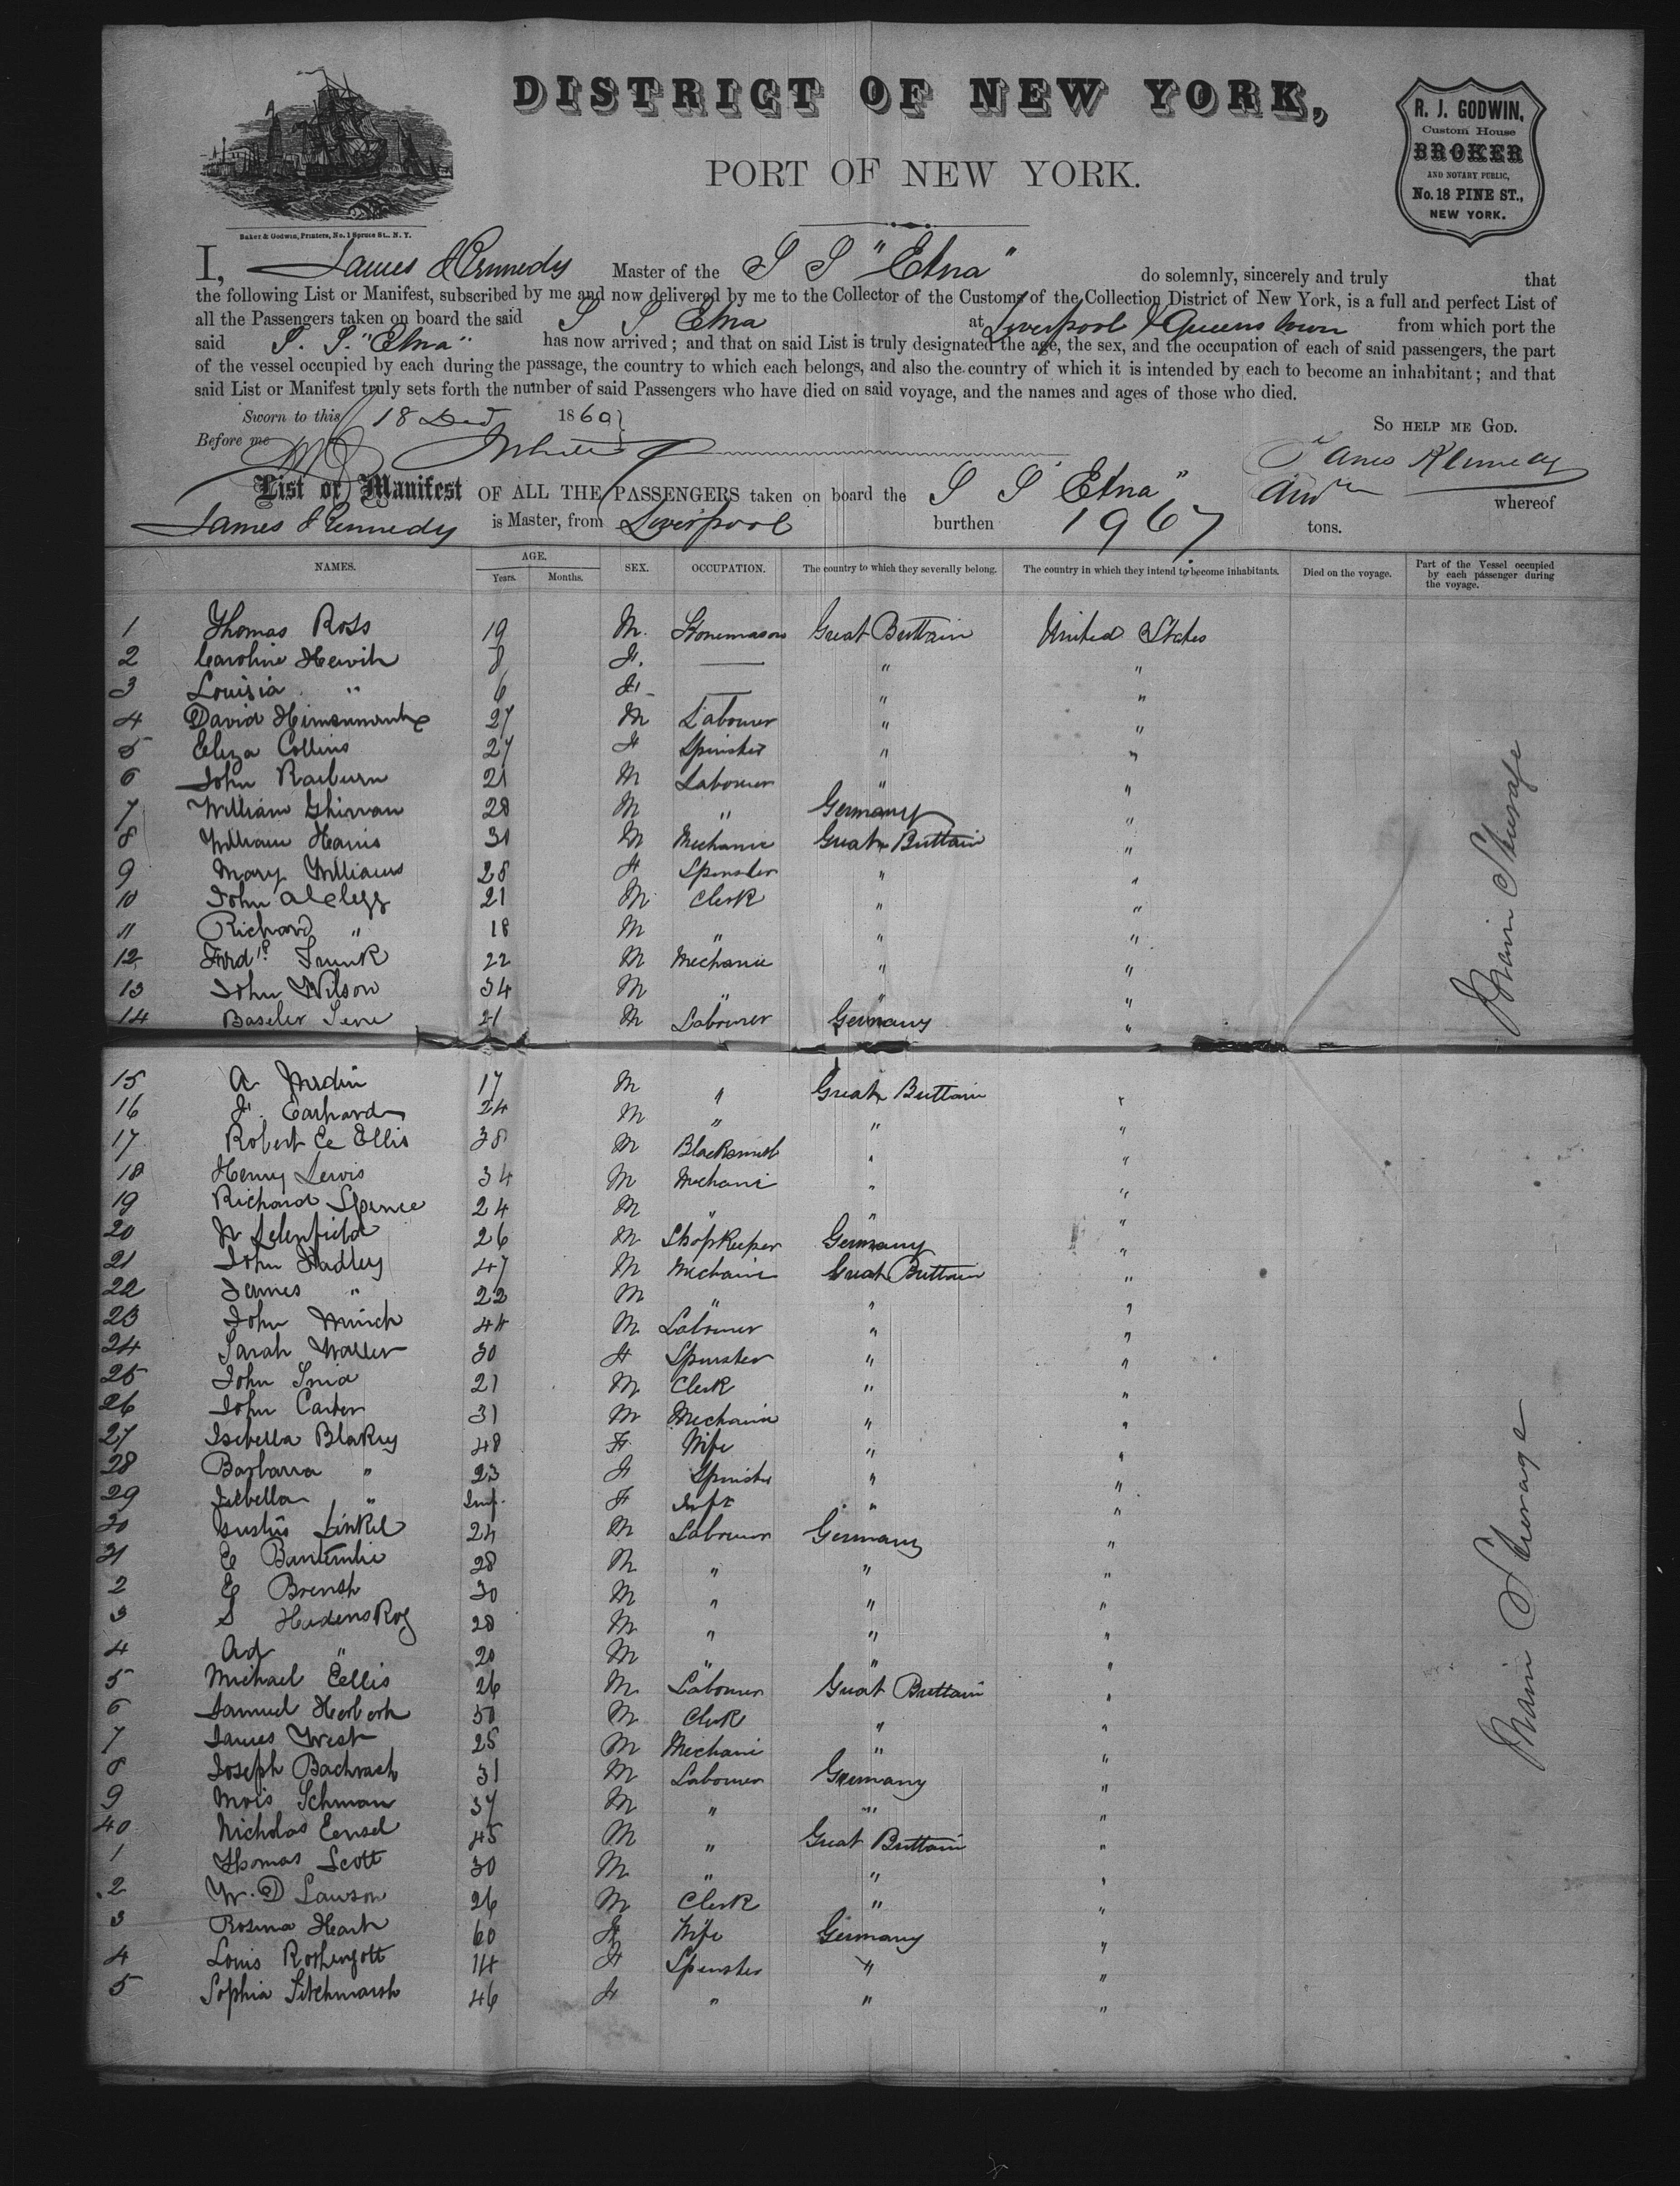 DISTRICT OF NEW YORK,
PORT OF NEW YORK.
Baker & Godwin, Printers, No. 1 Spruce St., N. Y.
R. J. GODWIN,
Custom House
BROKER
AND NOTARY PUBLIC,
No. 18 PINE ST.,
NEW YORK.
I, James Kennedy Master of the S S "Etna" do solemnly, sincerely and truly that
the following List or Manifest, subscribed by me and now delivered by me to the Collector of the Customs of the Collection District of New York, is a full and perfect List of
all the Passengers taken on board the said S S Etna at Liverpool & Queenstown from which port the
said S. S. "Etna" has now arrived; and that on said List is truly designated the age, the sex, and the occupation of each of said passengers, the part
of the vessel occupied by each during the passage, the country to which each belongs, and also the country of which it is intended by each to become an inhabitant; and that
said List or Manifest truly sets forth the number of said Passengers who have died on said voyage, and the names and ages of those who died.
Sworn to this 18 1860 So HELP ME GOD.
Before me James Kennedy
List or Manifest OF ALL THE PASSENGERS taken on board the S S "Etna" whereof
James Kennedy is Master, from Liverpool burthen 1967 tons.
NAMES. AGE. Years. Months. SEX. OCCUPATION. The country to which they severally belong. The country in which they intend to become inhabitants. Died on the voyage. Part of the Vessel occupied by each passenger during the voyage.
1 Thomas Ross 19 M. Stonemason Great Buttain United States
2 Caroline 8 F. — " "
3 Louisia " 6 F. — " "
4 David 27 M Labourer " "
5 Eliza Collins 27 F Spinster " "
6 John Raeburn 21 M Labourer " "
7 William 28 M " Germany "
8 William Harris 31 M Mechanic Great Buttain "
9 Mary Williams 28 F Spinster " "
10 John 21 M Clerk " "
11 Richard " 18 M " " "
12 22 M Mechanic " "
13 John Wilson 34 M " " "
14 Baseler 21 M Labourer Germany "
15 A 17 M " Great Buttain "
16 F. Earhard 24 M " " "
17 Robert Ee Ellis 38 M Blacksmith " "
18 Henry Lewis 34 M Mechani " "
19 Richard Spence 24 M " " "
20 26 M Shopkeeper Germany "
21 John Hadley 47 M Mechanic Great Buttain "
22 James " 22 M " " "
23 John 44 M Labourer " "
24 Sarah Waller 30 F Spinster " "
25 John 21 M Clerk " "
26 John Carter 31 M Mechanic " "
27 Isebella Blakey 48 F Wife " "
28 Barbarra " 23 F Spinster " "
29 Isebella " Inf. F Inft " "
30 Justus Linkel 24 M Labourer Germany "
31 E 28 M " " "
2 E Brensh 30 M " " "
3 S 28 M " " "
4 Ad " 20 M " " "
5 Michael Eellis 26 M Labourer Great Buttain "
6 Samuel Herbert 50 M Clerk " "
7 James West 25 M Mechani " "
8 Joseph Bachrach 31 M Labourer Germany "
9 Mois Schman 37 M " " "
40 Nicholas Eensel 45 M " Great Buttain "
1 Thomas Scott 30 M " " "
2 W. D Lawson 26 M Clerk " "
3 Rosina Heart 60 F Wife Germany "
4 Louis 14 F Spinster " "
5 Sophia 46 F " " "
Main Steerage
Main Steerage